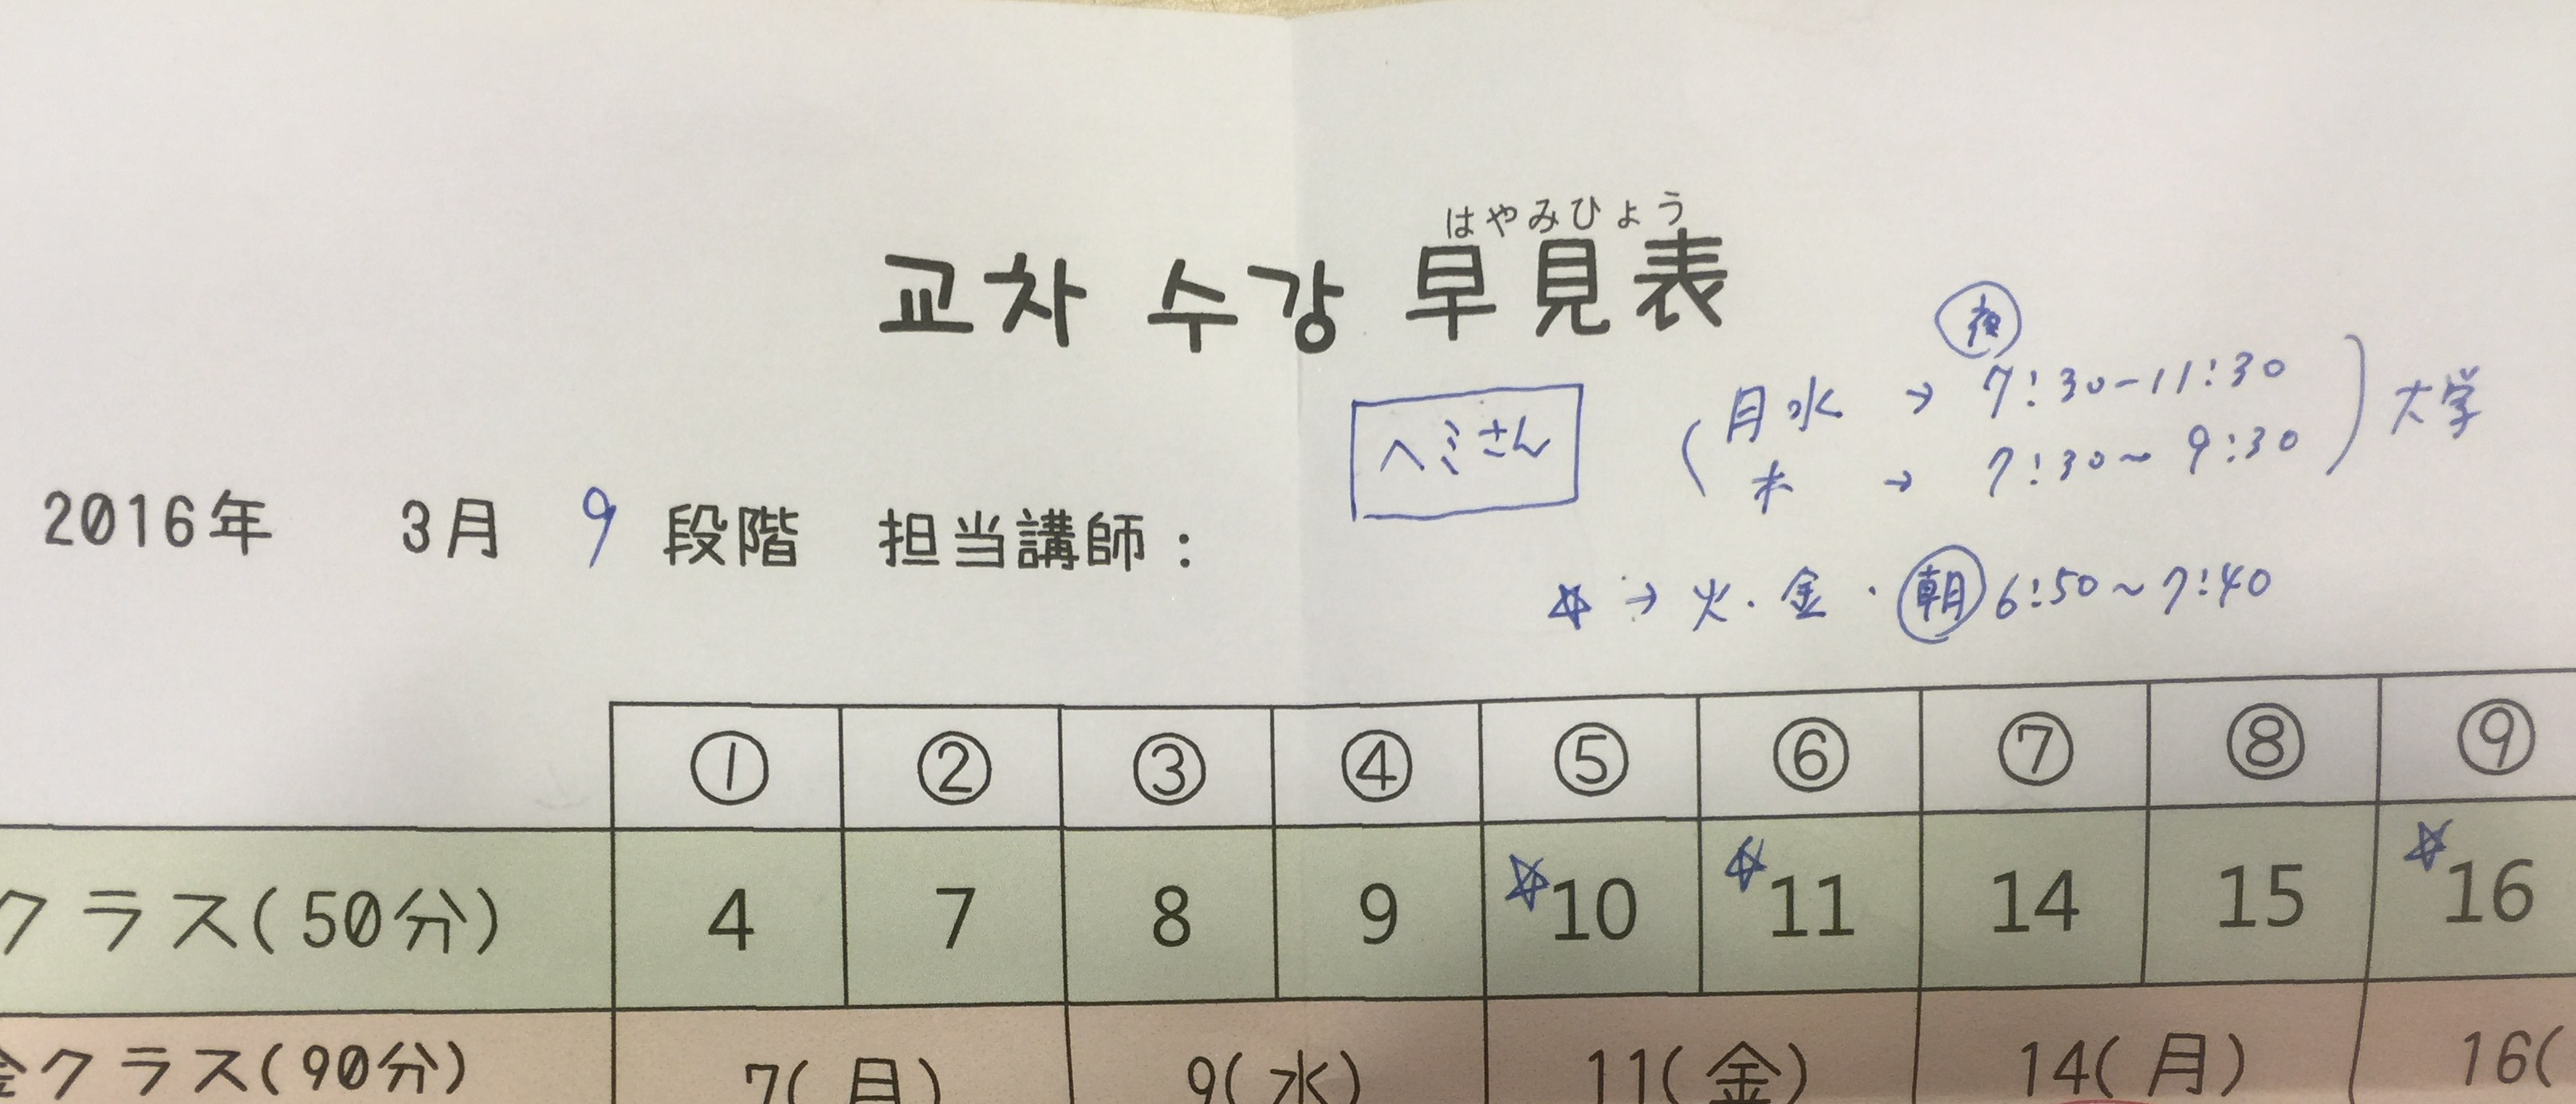 はやみひょう
교차 수강 早見表
夜
ヘミさん
(月水 → 7:30-11:30
木 → 7:30~9:30) 大学
2016年 3月 9 段階 担当講師:
☆→火・金・朝 6:50~7:40
① ② ③ ④ ⑤ ⑥ ⑦ ⑧ ⑨
クラス(50分) 4 7 8 9 ☆10 ☆11 14 15 ☆16
金クラス(90分) 7(月) 9(水) 11(金) 14(月) 16(